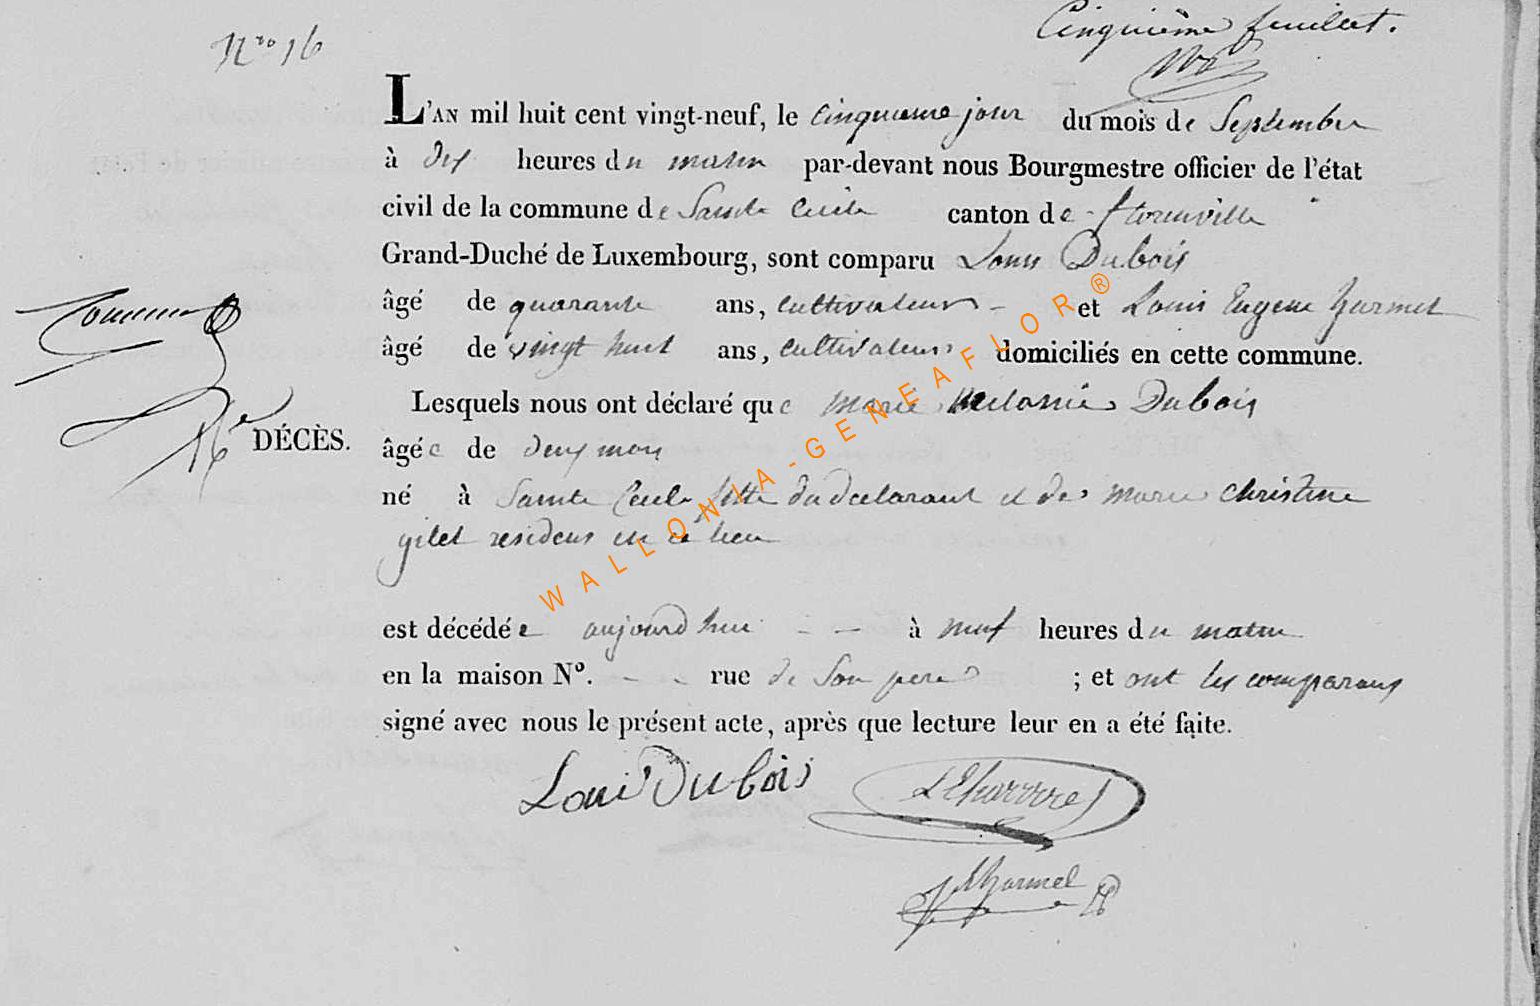 Cinquième feuillet.
Nro 16
L'AN mil huit cent vingt-neuf, le cinquieme jour du mois de Septembre
à dix heures du matin par-devant nous Bourgmestre officier de l'état
civil de la commune de Sainte Cecile canton de florenville
Grand-Duché de Luxembourg, sont comparu Louis Dubois
âgé de quarante ans, cultivateur - et Louis Eugene harmel
âgé de vingt huit ans, cultivateur domiciliés en cette commune.
Lesquels nous ont déclaré que Marie Melanie Dubois
16e DÉCÈS.
âgée de deux mois
né à Sainte Cecile fille du declarant et de Marie christine
gilet residens en ce lieu
est décédée aujourd hui - - à neuf heures du matin
en la maison No. - - rue de Son pere ; et ont les comparans
signé avec nous le présent acte, après que lecture leur en a été faite.
Loui Dubois
harmel
WALLONIA-GENEAFLOR®